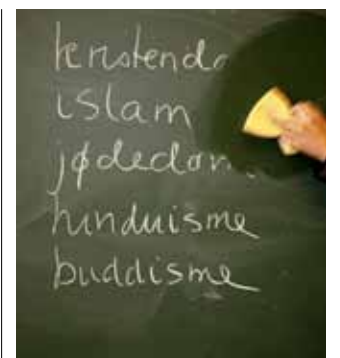 kristendo
islam
jødedom
hinduisme
buddisme